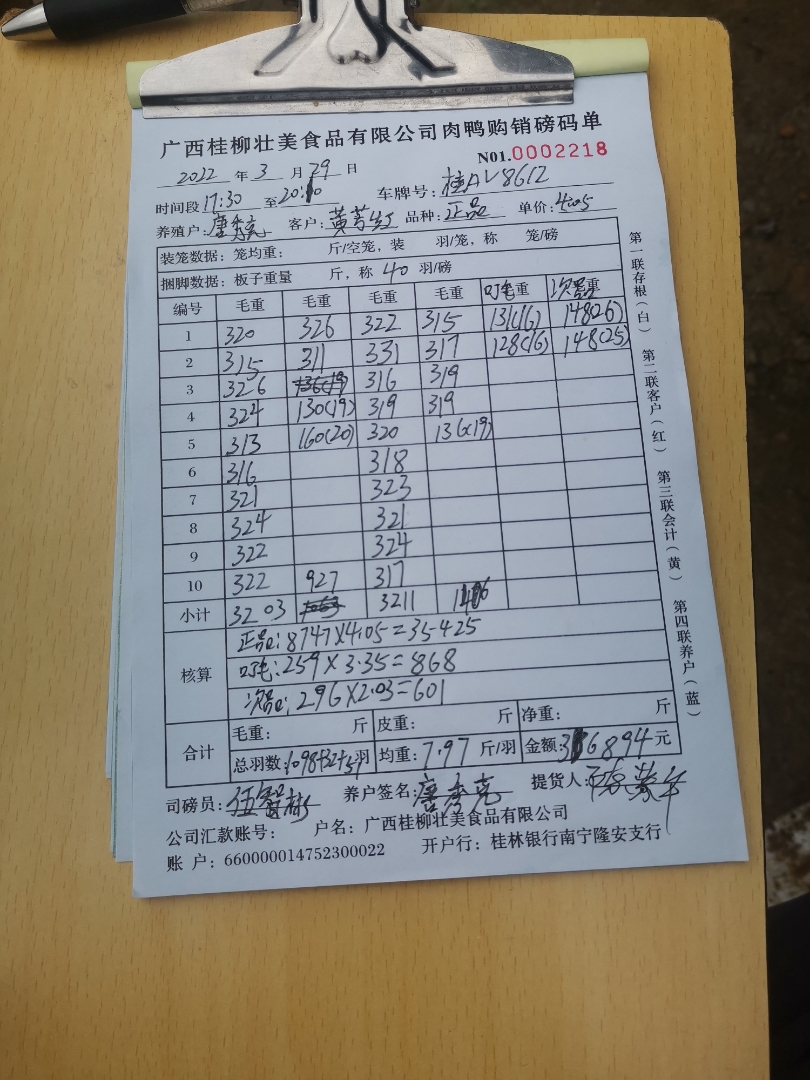 广西桂柳壮美食品有限公司肉鸭购销磅码单
N01.0002218
2022 年 3 月 29 日
时间段 17:30 至 20:10 车牌号: 桂AV8612
养殖户: 唐秀亮 客户: 黄芳红 品种: 正品 单价: 4.05
装笼数据: 笼均重: 斤/空笼, 装 羽/笼, 称 笼/磅
捆脚数据: 板子重量 斤, 称 40 羽/磅
编号 毛重 毛重 毛重 毛重 叮毛重 次品重
1 320 326 322 315 131(16) 148(26)
2 315 311 331 317 128(16) 148(25)
3 326 136(19) 316 319
4 324 130(19) 319 319
5 313 160(20) 320 136(19)
6 316 318
7 321 323
8 324 321
9 322 324
10 322 927 317
小计 3203 1063 3211 1406
核算
正品: 8747×4.05=35425
叮毛: 259×3.35=868
次品: 296×2.03=601
合计 毛重: 斤 皮重: 斤 净重: 斤
总羽数: 1098+32+51 羽 均重: 7.97 斤/羽 金额: 36894 元
司磅员: 伍智彬 养户签名: 唐秀亮 提货人:
公司汇款账号: 户名: 广西桂柳壮美食品有限公司
账 户: 660000014752300022 开户行: 桂林银行南宁隆安支行
第一联存根(白) 第二联客户(红) 第三联会计(黄) 第四联养户(蓝)